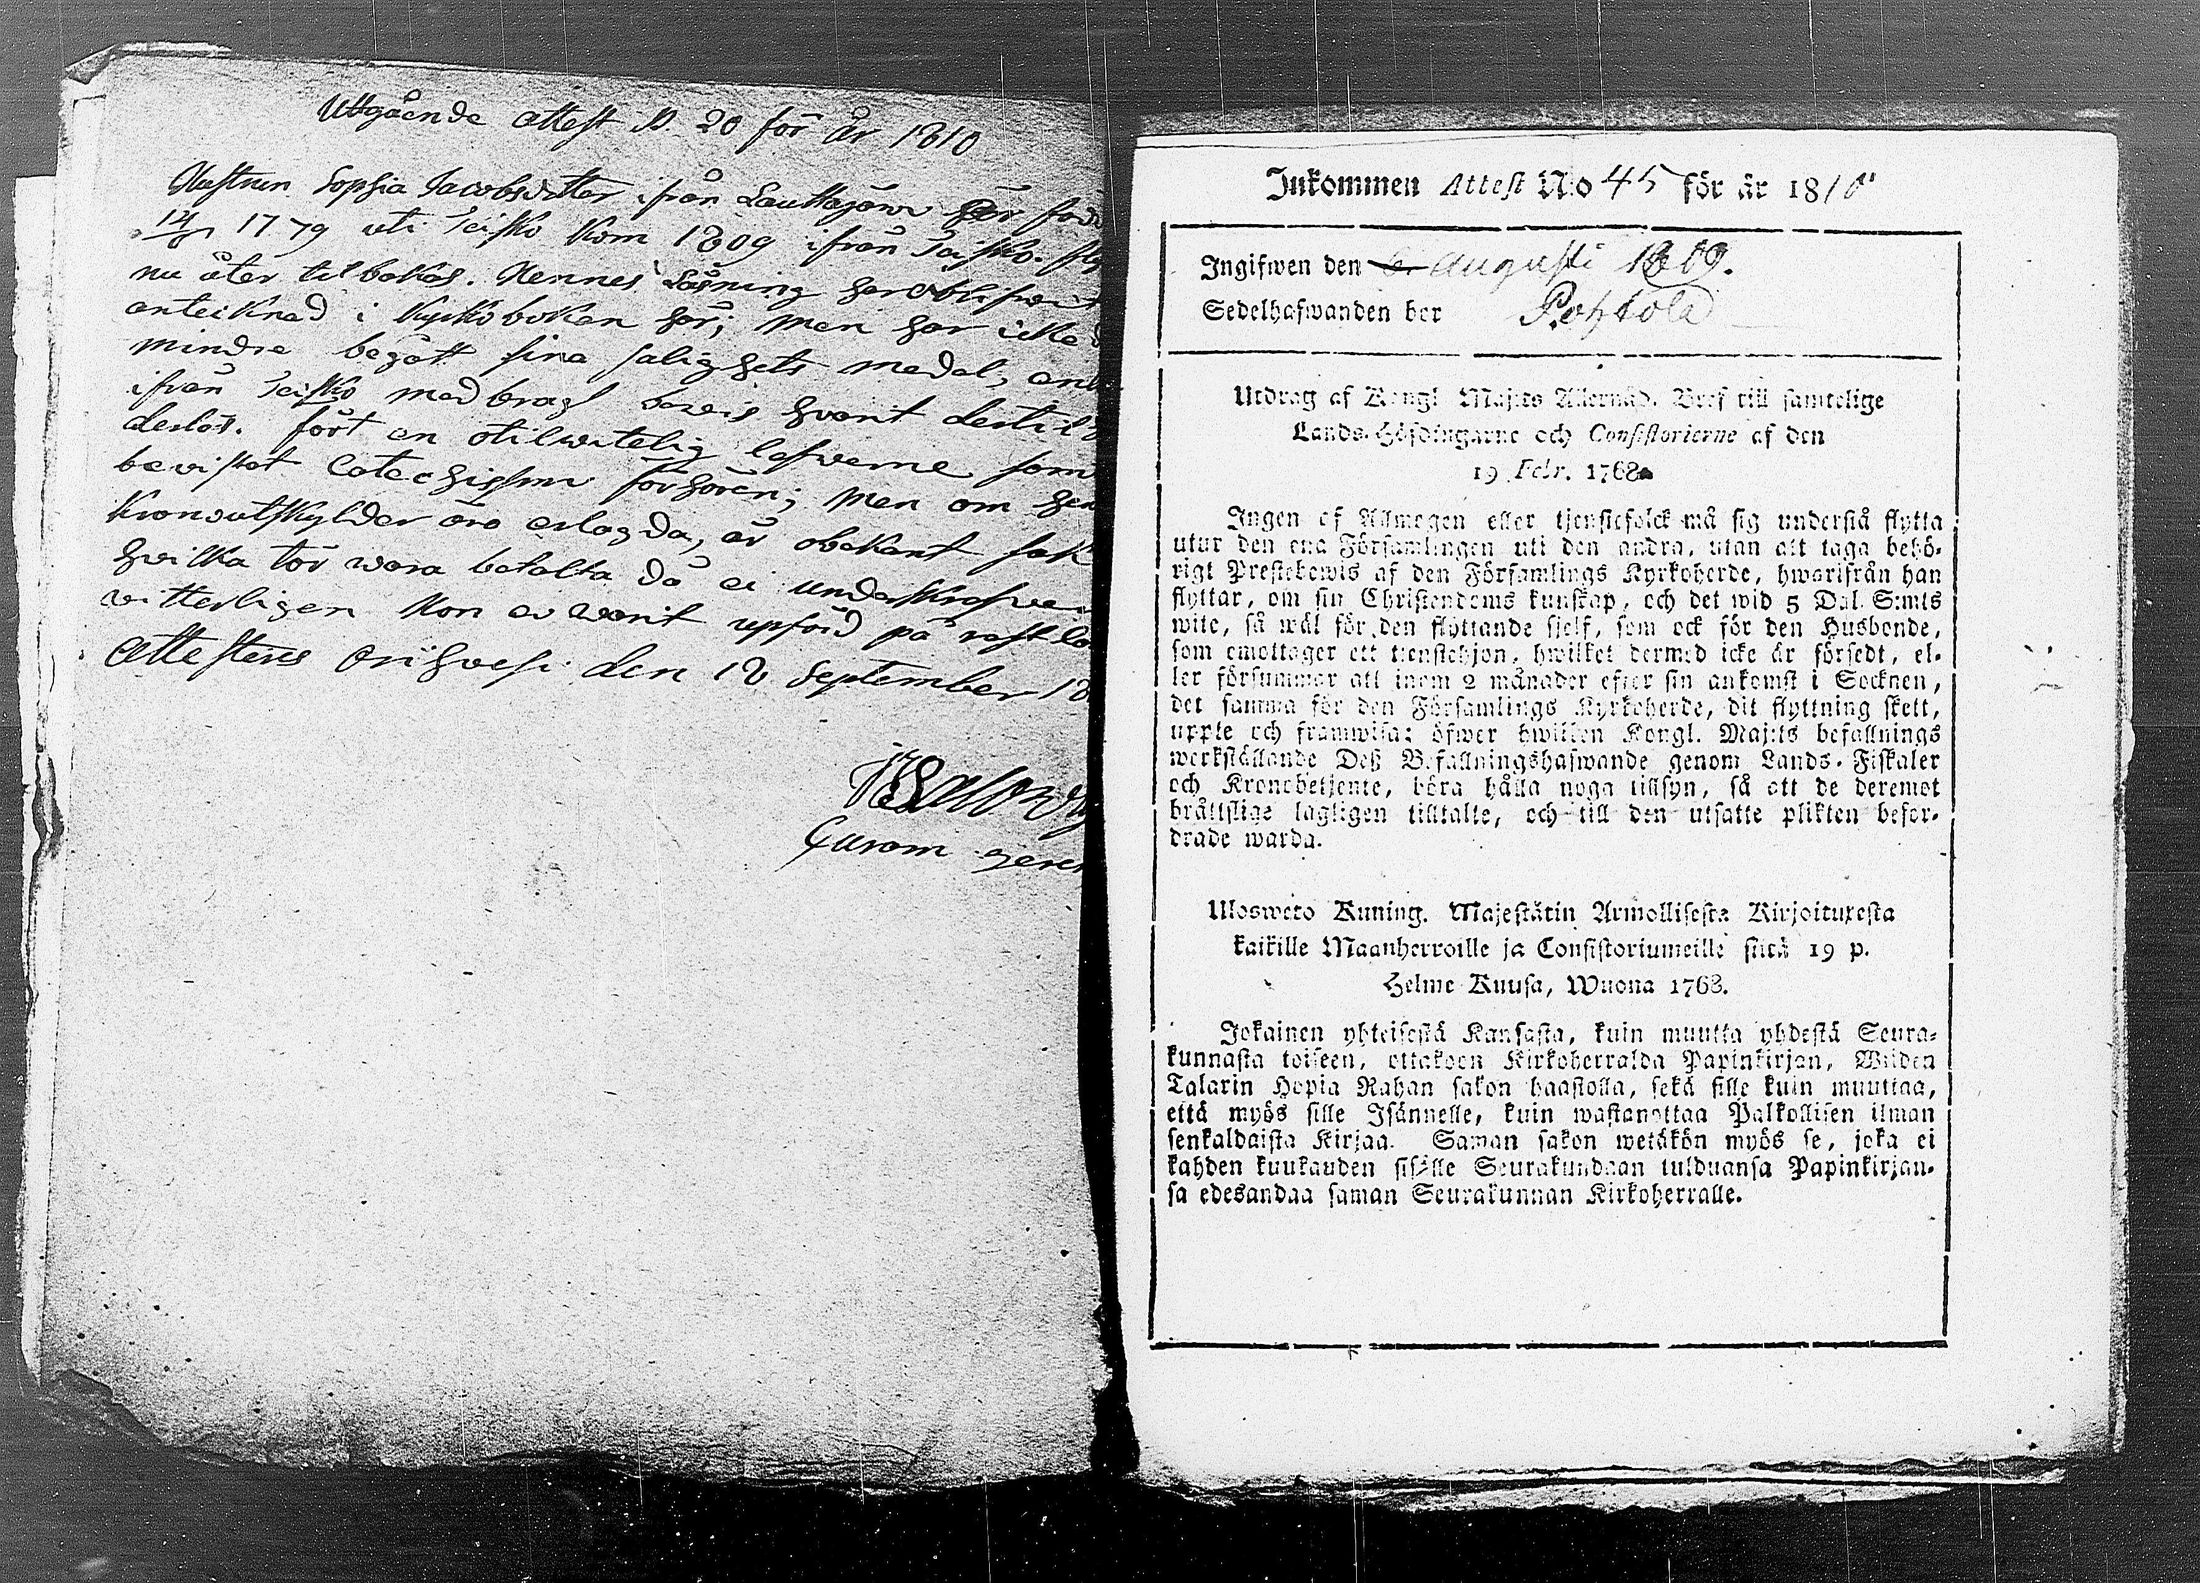 Uttgående attest N. 20 för år 1810
Hustrun Sophia Jacobsdotter ifrån Lauttajärwi är född
1779 uti Teisko kom 1809 ifrån Teisko. fly
nu åter tilbakas. Hennes Läsning har
anteiknad i Kyrkoboken här; men har icke d
mindre begått sina salighets medel, enl
ifrån Teisko medbragt bevis hvarit
derlös. fört en otilwitelig lefwerne som
bevistat Catechismi förhören; men om hen
Kronoutskylder äro erlagda, är obekant
hvilka tör wara betalta då ei underskrefve
vitterligen Kon ei warit upförd på restlä
Attesteres Orihvesi den 18 September 18
Curam gerens
Inkommen Attest No 45 för år 1810
Ingifwen den 6. Augusti 1809.
Sedelhafwanden bor Pohjola
Utdrag af Kongl Maj:ts Allernåd. Bref till samtelige
Lands-Höfdingarne och Consistorierne af den
19 Febr. 1768.
Ingen af Allmogen eller tjenstefolck må sig understå flytta
utur den ena Församlingen uti den andra, utan att taga behö-
rigt Prestebewis af den Församlings Kyrkoherde, hwarifrån han
flyttar, om sin Christendoms kunskap, och det wid 5 Dal. S:mts
wite, så wäl för den flyttande sjelf, som ock för den Husbonde,
som emottager ett tienstehjon, hwilket dermed icke är försedt, el-
ler försummar att inom 2 månader efter sin ankomst i Socknen,
det samma för den Församlings Kyrkoherde, dit flyttning skett,
uppte och framwisa: öfwer hwilken Kongl. Maj:ts befallnings
werkställande Deß Befallningshafwande genom Lands-Fiskaler
och Kronobetjente, böra hålla noga tillsyn, så att de deremot
brättslige lagligen tilltalte, och till den utsatte plikten befor-
drade warda.
Ulosweto Kuning. Majestätin Armollisesta Kirjoituxesta
kaikille Maanherroille ja Consistoriumeille siitä 19 p.
Helme Kuusa, Wuona 1768.
Jokainen yhteisestä Kansasta, kuin muutta yhdestä Seura-
kunnasta toiseen, ottakoon Kirkoherralda Papinkirjan, Wiiden
Talarin Hopia Rahan sakon haastolla, sekä sille kuin muuttaa,
että myös sille Isännelle, kuin wastanottaa Palkollisen ilman
senkaldaista Kirjaa. Saman sakon wetäkön myös se, joka ei
kahden kuukauden sisälle Seurakundaan tulduansa Papinkirjan-
sa edesandaa saman Seurakunnan Kirkoherralle.